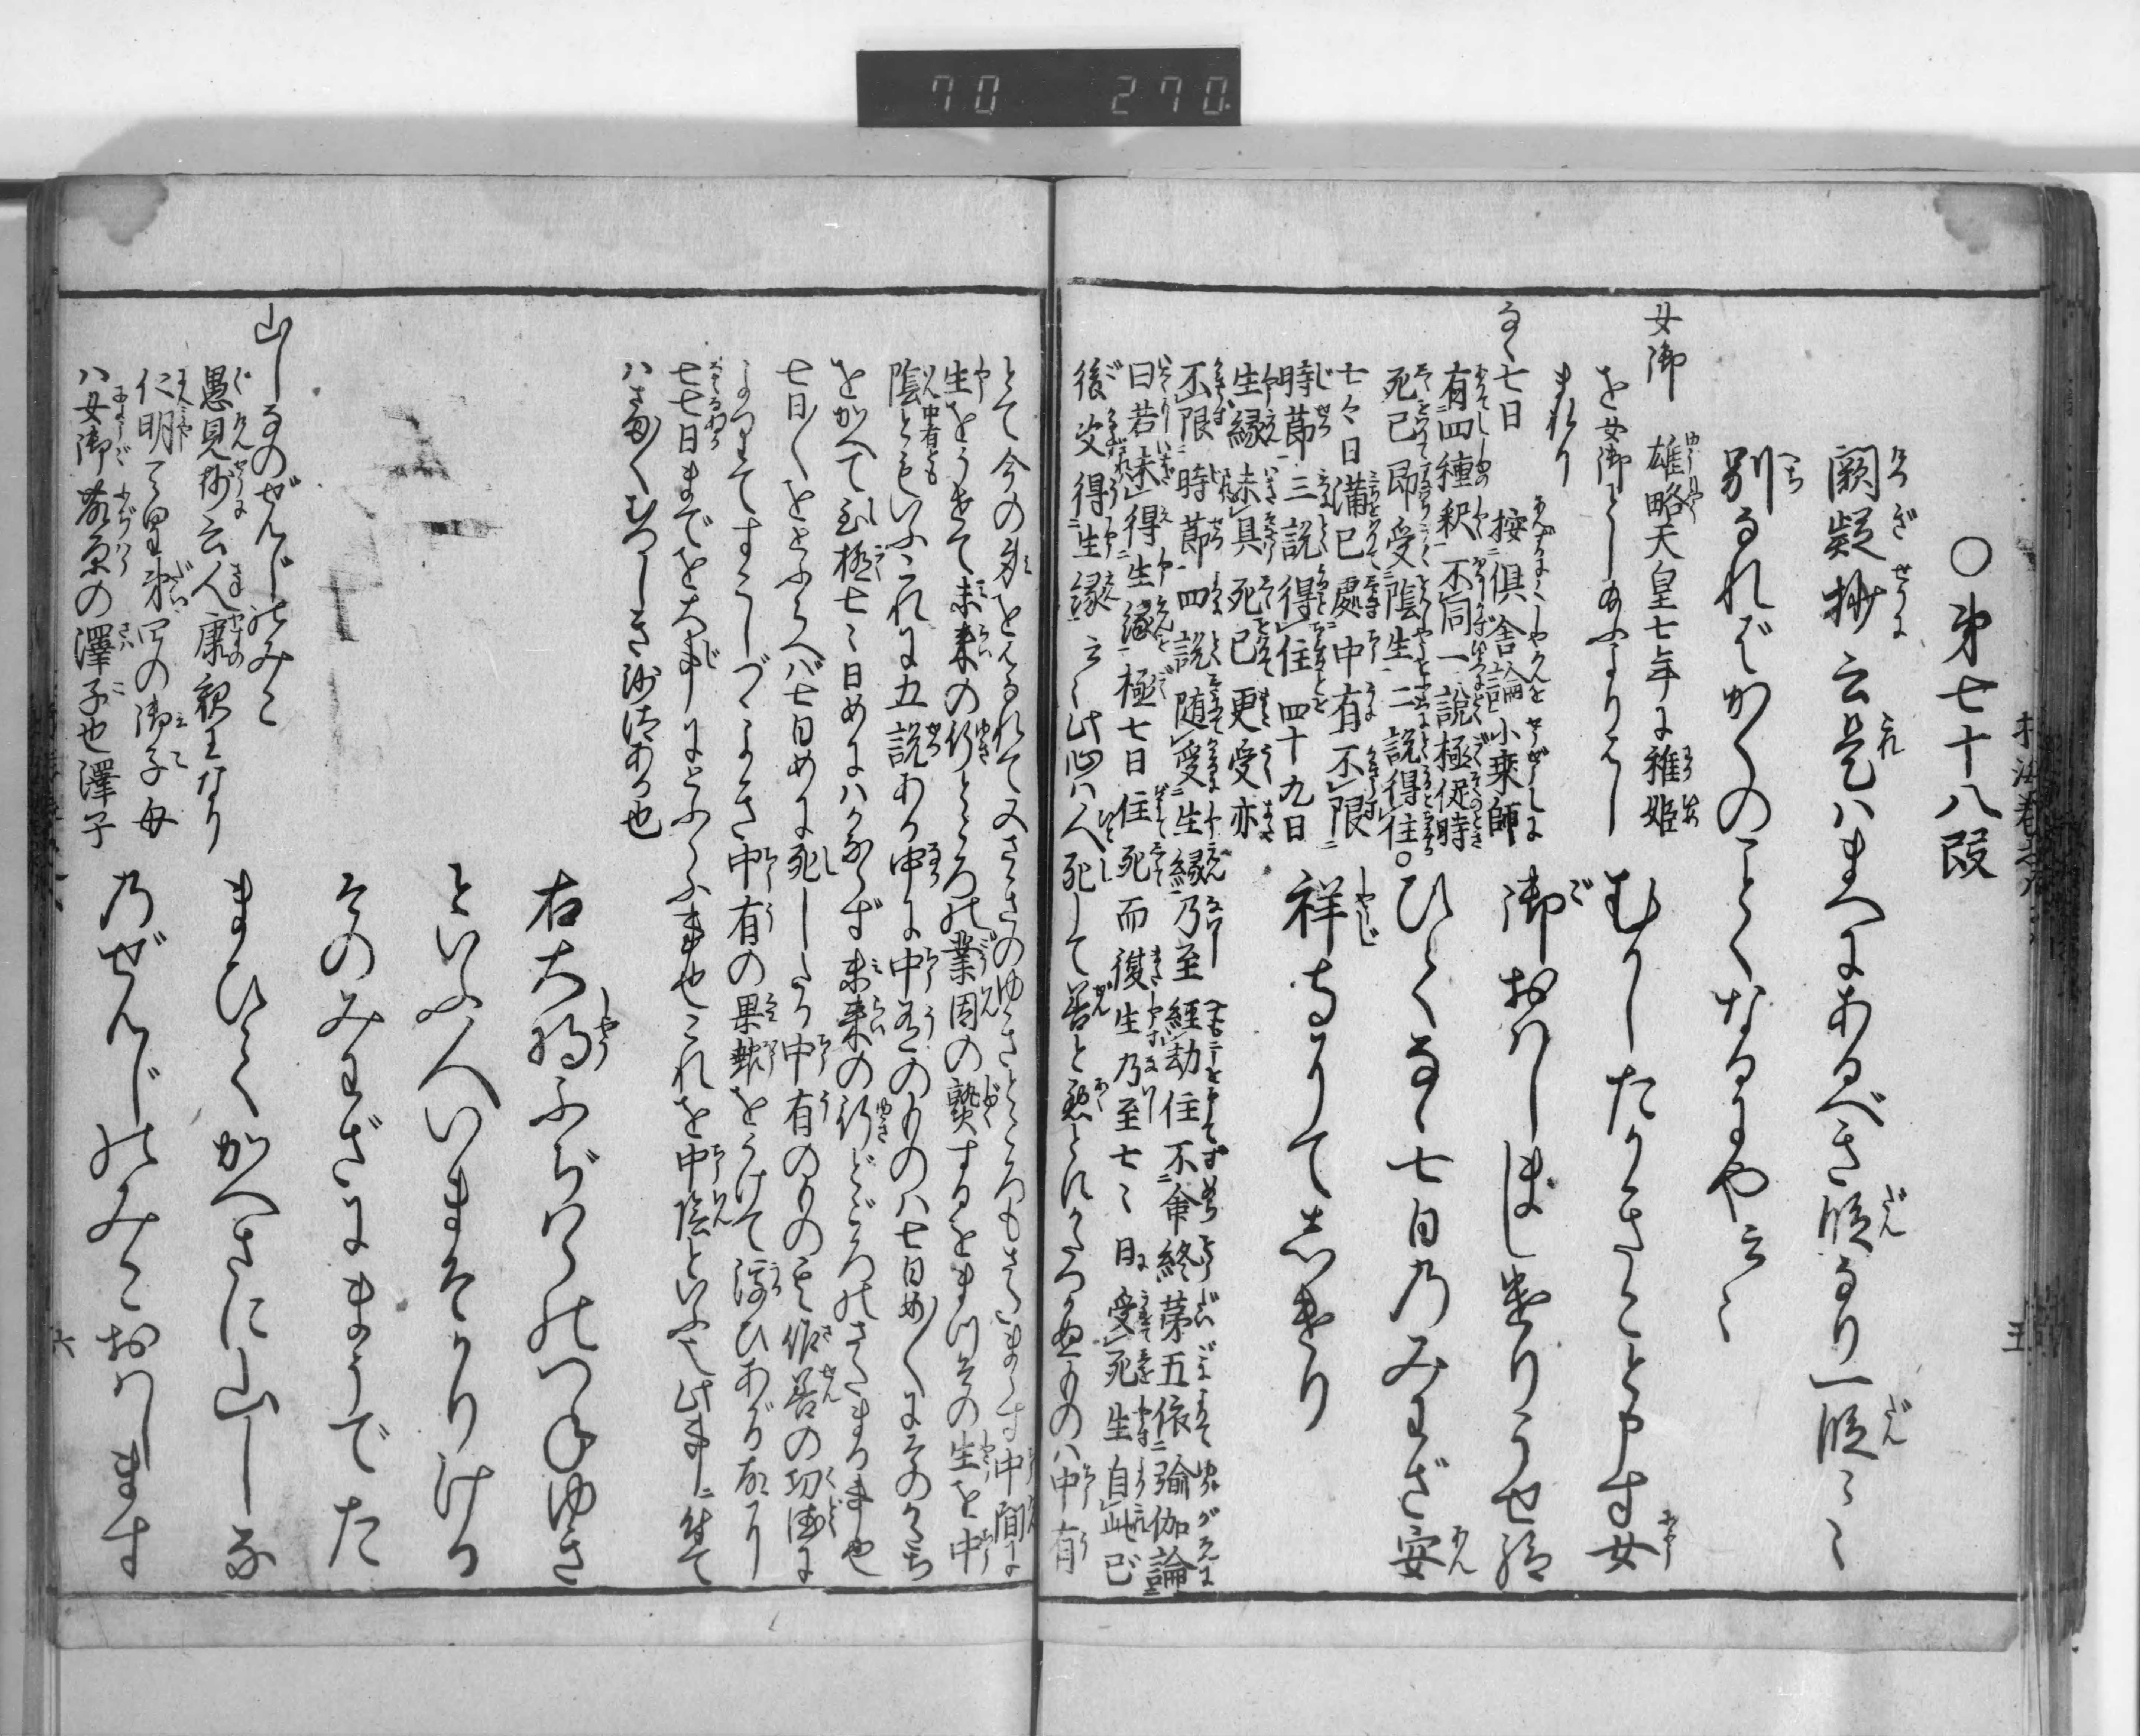 70 270
○第七十八段
闕疑抄云是ハまへにあるべき段なり一段〻〻
別なればかくのごとくなるにや云〻
女御 雄略天皇七年に稚姫
を女御としあふよりはし
まれり
むかしたかきこと申す女
御おはしましけりうせ給
ひてなゝ七日のみわざ安
祥寺にてしけり
なゝ七日 按俱舎論小乗師
有四種釈不同一説極促時
死已即受陰生二説得住
七〻日満已處中有不限
時節三説得住四十九日
生縁未具死已更受亦
不限時節四説随受生縁乃至経劫住不命終第五依瑜伽論
曰若未得生縁極七日住死而復生乃至七〻日受死生自此已
後决得生縁云〻此心ハ人死して善と悪と
ものハ中有
とて今の身をはなれて又さきのゆきところもさたまらす中間に
生をうけて未来の行ところの業因の熟するをまつその生を中
陰とも中有ともいふこれに五説あり中に中有のものハ七日め〳〵にそのかたち
をかへて至極七〻日めにハかならず未来の行どころのさたまる也
七日〳〵をとふらへバ七日めに死したる中有のもの其作善の功徳に
よつてすこしづゝよき中有の果報をうけて浮ひあがる
七七日までを大事にとふらふ事也これを中陰といふ也此事ニ付て
ハさま〴〵むつかしき沙汰ある也
右大将ふぢはらのつねゆき
といふ人いまそかりける
そのみわざにまうでた
まひてかへさに山しな
のぜんじのみこおはします
山しなのぜんじのみこ
愚見抄云人康親王なり
仁明天皇第四の御子母
ハ女御藤原の澤子也澤子
五
六